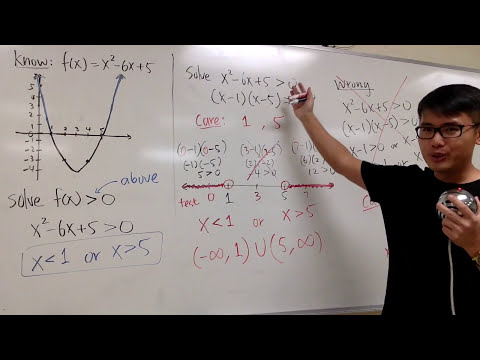 Know: f(x) = x²-6x+5
5
4
3
2
1
0
1 2 3 4 5
-1
-2
-3
-4
above
solve f(x) > 0
x²-6x+5 > 0
x<1 or x>5
Solve x²-6x+5 > 0
(x-1)(x-5)
Care: 1 , 5
(0-1)(0-5)
(-1)(-5)
5>0
(3-1)(3-5)
(2)(-2)
-4>0
(7-1)
(6)(2)
12>0
test 0 1 3 5 7
x<1 or x>5
(-∞, 1) ∪ (5, ∞)
Wrong
x²-6x+5>0
(x-1)(x-5)
x-1>0 or